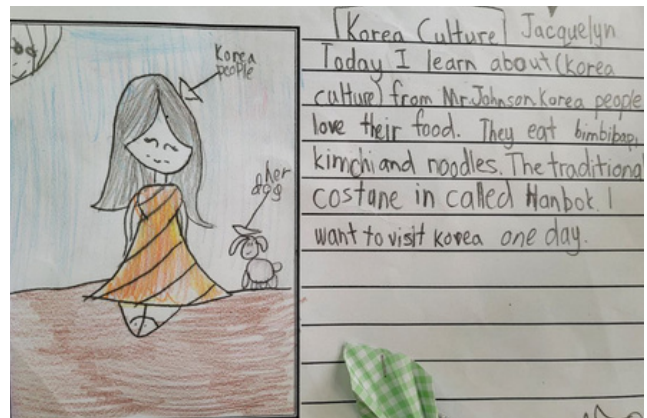 Korea Culture Jacquelyn
Today I learn about (korea
culture) from Mr.Johnson.Korea people
love their food. They eat bimbibap,
kimchi and noodles. The traditional
costane in called Hanbok. I
want to visit korea one day.
Korea
people
her
dog